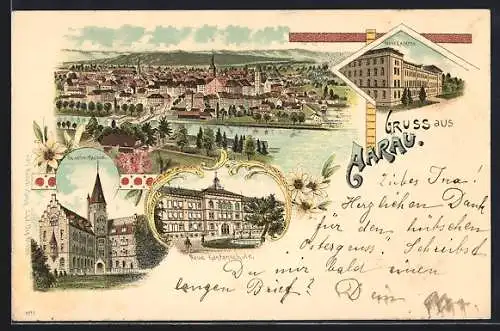 Neue Kaserne
GRUSS AUS
AARAU.
Neue Kantonschule.
Liebes Ina!
Herzlichen Dank
für den hübschen
Ostergruss! Schreibst
Du mir bald einen
langen Brief? Dein